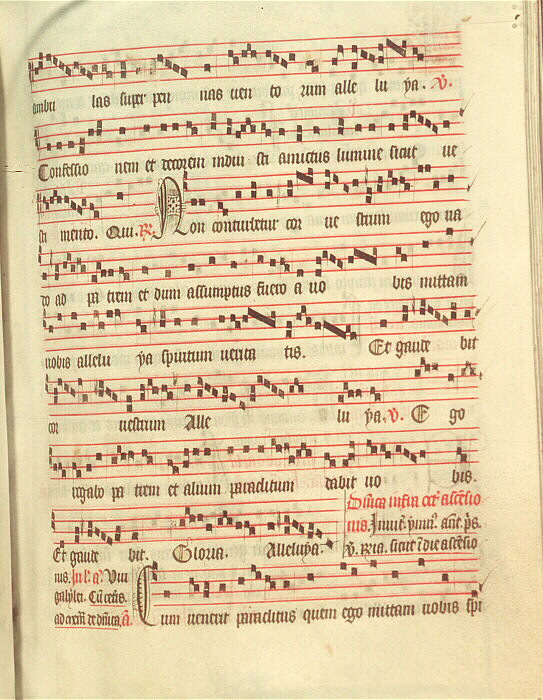 ambu las super pen nas uen to rum alle lu ya. V.
Confessio nem et decorem indui sti amictus lumine sicut ue
sti mento. Qui. R. Non conturbetur cor ue strum ego ua
do ad pa trem et dum assumptus fuero a uo bis mittam
uobis allelu ya spiritum uerita tis. Et gaude bit
cor uestrum Alle lu ya. V. E go
rogabo pa trem et alium paraclitum dabit uo bis.
Et gaude bit. Gloria. Alleluya.
Dnica infra oct' ascēsio
nis.
V. sicut ī die ascēsio
nis.
galylei. Cū cetis.
Cum uenerit paraclitus quem ego mittam uobis spi